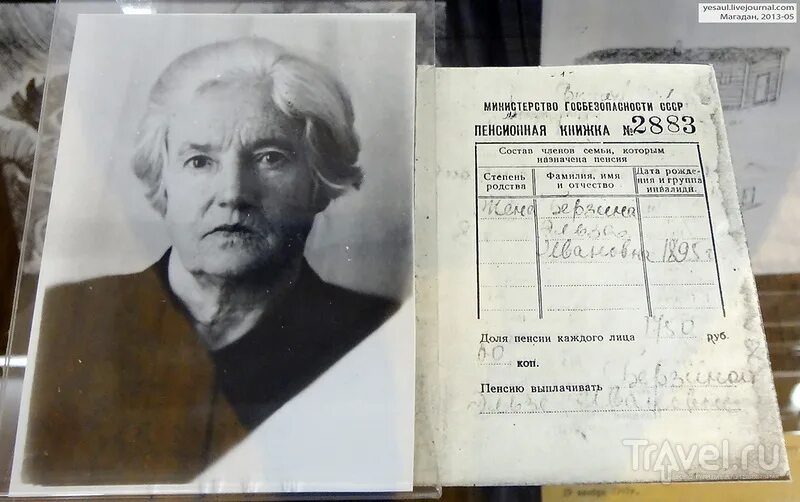 yesaul.livejournal.com
Магадан, 2013-05
МИНИСТЕРСТВО ГОСБЕЗОПАСНОСТИ СССР
ПЕНСИОННАЯ КНИЖКА №2883
Состав членов семьи, которым
назначена пенсия
Степень родства
Фамилия, имя и отчество
Дата рожде-ния и группа инвалидн.
Жена Берзина
Эльза
Ивановна 1895 г
Доля пенсии каждого лица 1750 руб.
00 коп.
Пенсию выплачивать Берзиной
Эльзе Ивановне
Travel.ru